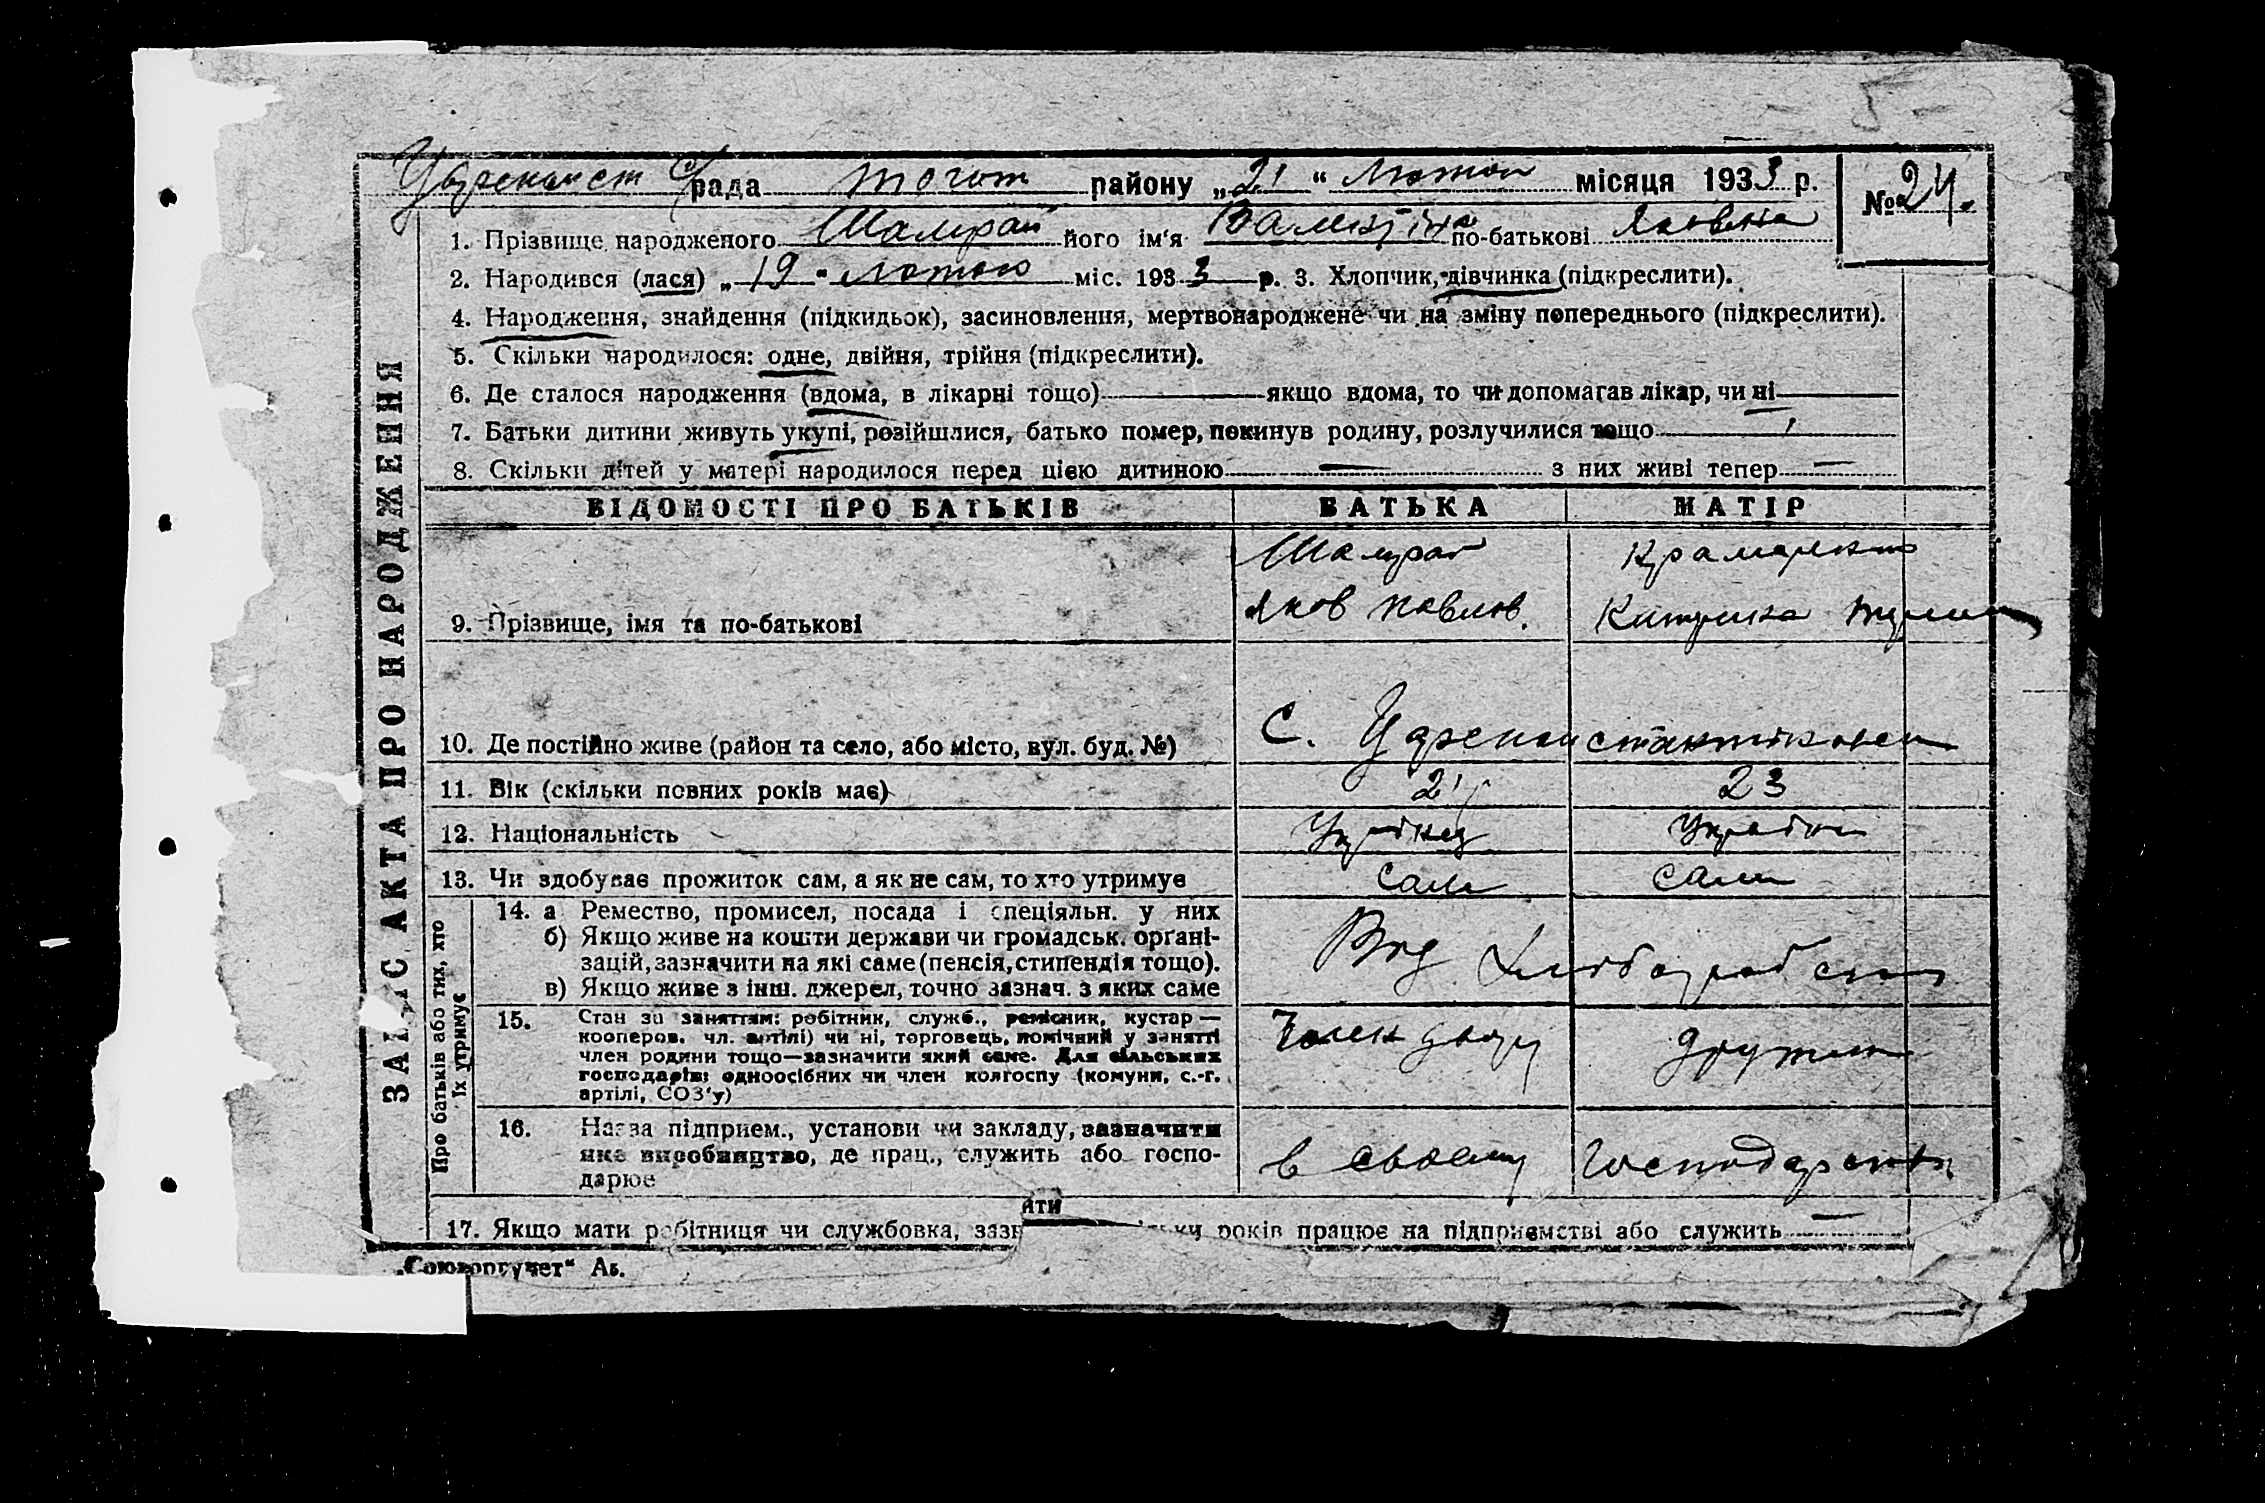 5
с/рада тогот району „21“ Лютого місяця 1933 р. № 24.
1. Прізвище народженого Шамрай його ім'я Валентіна по-батькові Яковна
2. Народився (лася) „19“ лютого міс. 1933 р. 3. Хлопчик, дівчинка (підкреслити).
4. Народження, знайдення (підкидьок), засиновлення, мертвонароджене чи на зміну попереднього (підкреслити).
5. Скільки народилося: одне, двійня, трійня (підкреслити).
6. Де сталося народження (вдома, в лікарні тощо) якщо вдома, то чи допомагав лікар, чи ні
7. Батьки дитини живуть укупі, розійшлися, батько помер, покинув родину, розлучилися тощо
8. Скільки дітей у матері народилося перед цією дитиною — з них живі тепер —
ЗАПИС АКТА ПРО НАРОДЖЕННЯ
ВІДОМОСТІ ПРО БАТЬКІВ БАТЬКА МАТІР
Шамрай
Яков Павлов.
Катерина
9. Прізвище, імя та по-батькові
10. Де постійно живе (район та село, або місто, вул. буд. №) С.
11. Вік (скільки повних років має) 21 23
12. Національність
13. Чи здобуває прожиток сам, а як не сам, то хто утримує сам сама
Про батьків або тих, хто
їх утримує
14. а Ремество, промисел, посада і спеціяльн. у них
б) Якщо живе на кошти держави чи громадськ. органі-
зацій, зазначити на які саме (пенсія, стипендія тощо).
в) Якщо живе з інш. джерел, точно зазнач. з яких саме
15. Стан за заняттям: робітник, служб., ремісник, кустар —
кооперов. чл. артілі) чи ні, торговець, помічний у занятті
член родини тощо—зазначити який саме. Для сільських
господарів: одноосібних чи член колгоспу (комуни, с.-г.
артілі, СОЗ'у)
Член двору
дружина
16. Назва підприєм., установи чи закладу, зазначити
яке виробництво, де прац., служить або госпо-
дарює
в своему господарстві
17. Якщо мати робітниця чи службовка, років працює на підприємстві або служить —
„Союзоргучет“